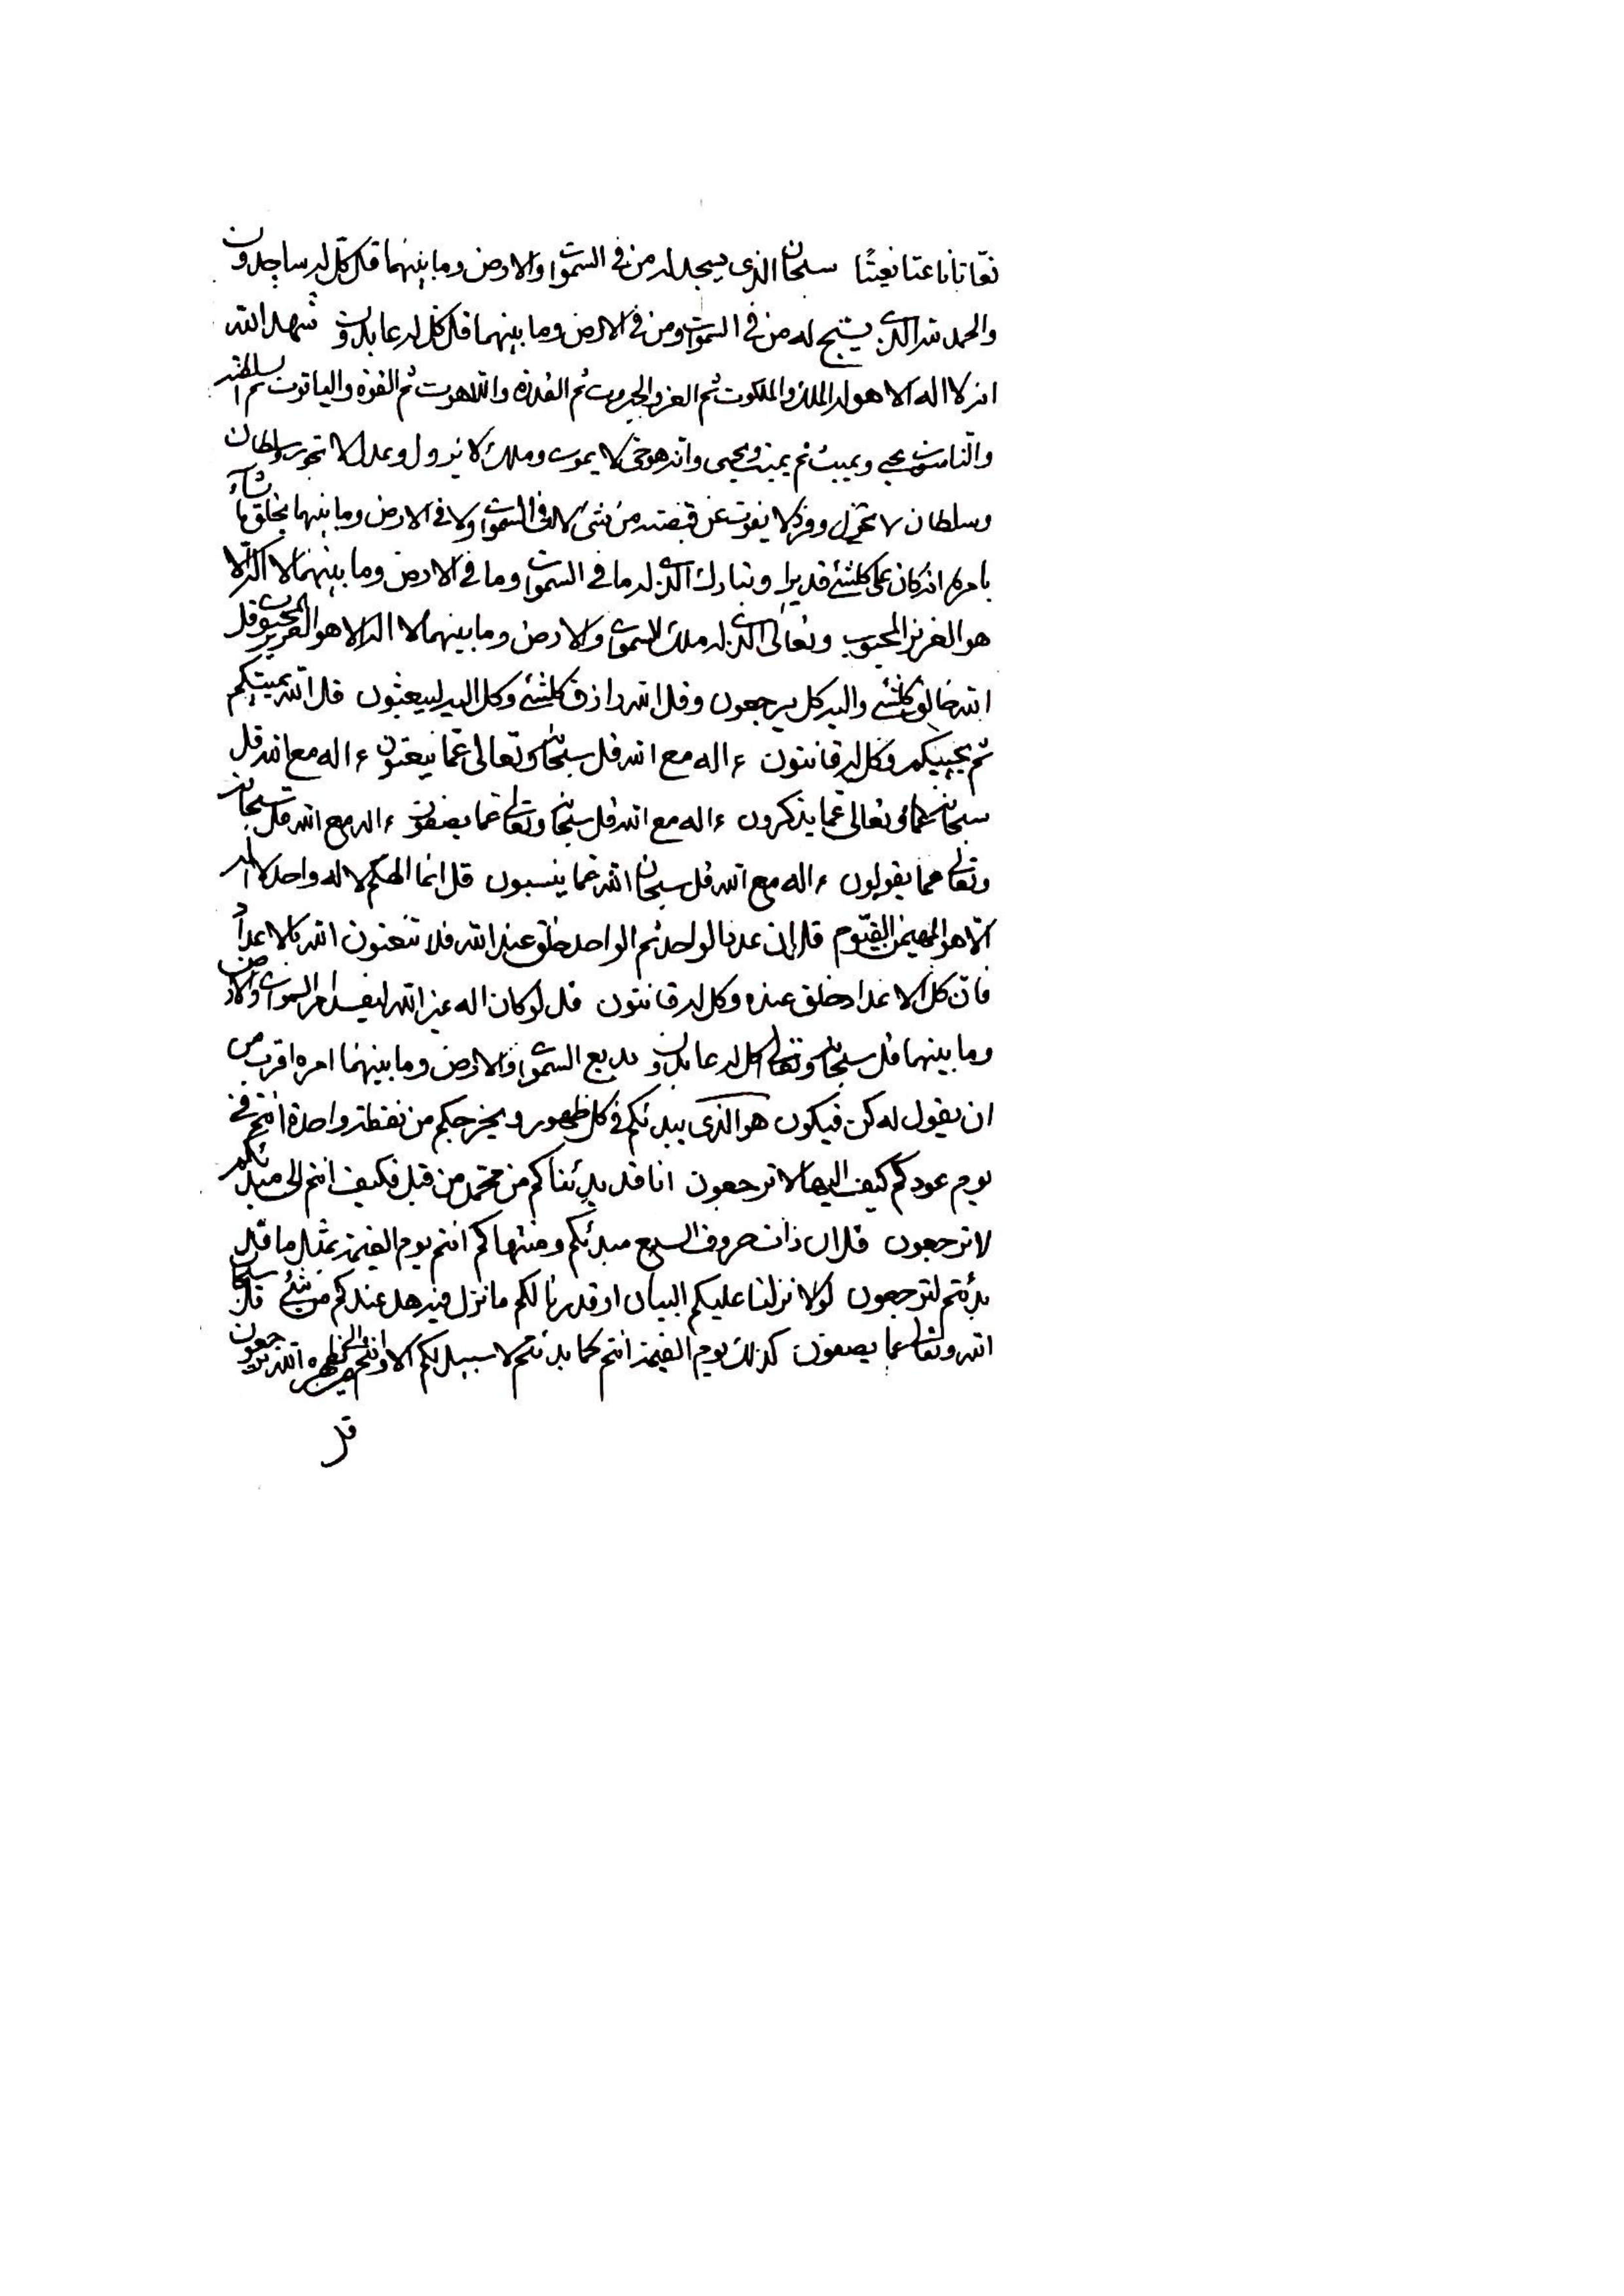 نعّاتا ناعتا نعيتًا سبحان الذى يسجد له من فى السموات والارض وما بينهما قل كل له ساجدون
والحمد لله الذى يسبح له من فى السموات ومن فى الارض وما بينهما قل كل له عابدون شهد الله
انه لا اله الا هو له الملك والملكوت ثم العز والجبروت ثم القدرة واللاهوت ثم القوة والياقوت ثم السلطنه
والناسوت يحيى ويميت ثم يميت ويحيى وانه هو حى لا يموت وملك لا يزول وعدل لا تجور وسلطان
وسلطان لا تحول وفرد لا يفوت عن قبضته من شئ لا فى السموات ولا فى الارض وما بينهما يخلق ما يشآء
بامره انه كان على كلشئ قديرا وتبارك الذى له ما فى السموات وما فى الارض وما بينهما لا اله الا
هو العزيز المحبوب وتعالى الذى له ملك السموات والارض وما بينهما لا اله الا هو العزيز المحبوب قل
الله خالق كلشئ واليه كل يرجعون وقل الله رازق كلشئ وكل اليه ليبعثون قل الله يميتكم
ثم يحييكم وكل له قانتون ءاله مع الله قل سبحانه وتعالى عما ينعتون ءاله مع الله قل
سبحانه وتعالى عما يذكرون ءاله مع الله قل سبحانه وتعالى عما يصفون ءاله مع الله قل سبحانه
وتعالى عما يقولون ءاله مع الله قل سبحان الله عما ينسبون قل انما الهكم لاله واحد لا اله
الا هو المهيمن القيوم قل ان عدد الواحد ثم الواحد خلق عند الله فلا تنعتون الله بالاعداد
فان كل الاعداد خلق عنده وكل له قانتون قل لو كان اله غير الله ليفسد امر السموات والارض
وما بينهما قل سبحانه وتعالى كل له عابدون بديع السموات والارض وما بينهما امره اقرب من
ان يقول له كن فيكون هو الذى يبدئكم فى كل ظهور ويخرجكم من نقطة واحدة انتم فى
يوم عودكم كيف اليها لا ترجعون انا قد بدئناكم من محمد من قبل فكيف انتم الى مبدئكم
لا ترجعون قل ان ذات حروف السبع مبدئكم ومنتهاكم انتم يوم القيمة بمثل ما قبل
بدئتم لترجعون لولا نزلنا عليكم البيان او قدرنا لكم ما نزل فيه هل عندكم من شئ قل سبحان
الله وتعالى عما يصفون كذلك يوم القيمة انتم كما بدئتم لا سبيل لكم الا وانتم الى من يظهره الله ترجعون
قل